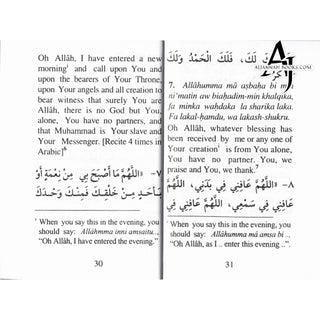 Oh Allâh, I have entered a new
morning¹ and call upon You and
upon the bearers of Your Throne,
upon Your angels and all creation to
bear witness that surely You are
Allâh, there is no God but You
alone, You have no partners, and
that Muhammad is Your slave and
Your Messenger. [Recite 4 times in
Arabic]⁶
٧- «اللَّهُمَّ مَا أَصْبَحَ بِي مِنْ نِعْمَةٍ أَوْ
بِأَحَدٍ مِنْ خَلْقِكَ فَمِنْكَ وَحْدَكَ
¹ When you say this in the evening, you
should say: Allâhmma inni amsaitu..,
"Oh Allâh, I have entered the evening."
30
ALJANNAH BOOKS.COM
لَكَ، فَلَكَ الْحَمْدُ وَلَكَ
7. Allâhumma mâ aṣbaḥa bi mi
ni'matin aw biaḥadim-min khalqika,
fa minka waḥdaka la sharika laka.
Fa lakal-ḥamdu, wa lakash-shukru.
Oh Allâh, whatever blessing has
been received by me or any one of
Your creation¹ is from You alone,
You have no partner. You, we
praise and You, we thank.⁷
٨- «اللَّهُمَّ عَافِنِي فِي بَدَنِي، اللَّهُمَّ
عَافِنِي فِي سَمْعِي، اللَّهُمَّ عَافِنِي فِي
¹ When you say this in the evening, you
should say: Allâhumma mâ amsa bi ..,
"Oh Allâh, as I .. enter this evening ..".
31